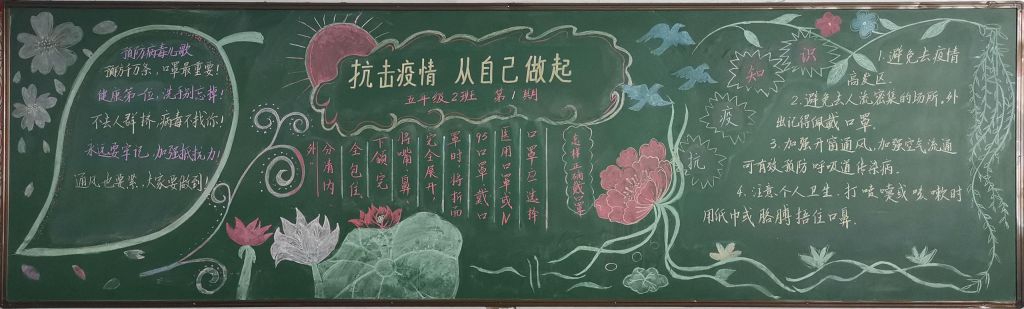 预防病毒儿歌
预防千万条，口罩最重要！
健康第一位，洗手别忘掉！
不去人群挤，病毒不找你！
永远要牢记，加强抵抗力！
通风也要紧，大家要做到！
抗击疫情 从自己做起
五年级2班 第1期
怎样正确戴口罩
口罩应选择
医用口罩或N
95口罩戴口
罩时将折面
完全展开
将嘴鼻
下颌完
全包住
分清内
外
知
识
疫
抗
1.避免去疫情
高发区.
2.避免去人流密集的场所,外
出记得佩戴口罩.
3.加强开窗通风,加强空气流通
可有效预防呼吸道传染病.
4.注意个人卫生.打喷嚏或咳嗽时
用纸巾或胳膊捂住口鼻.